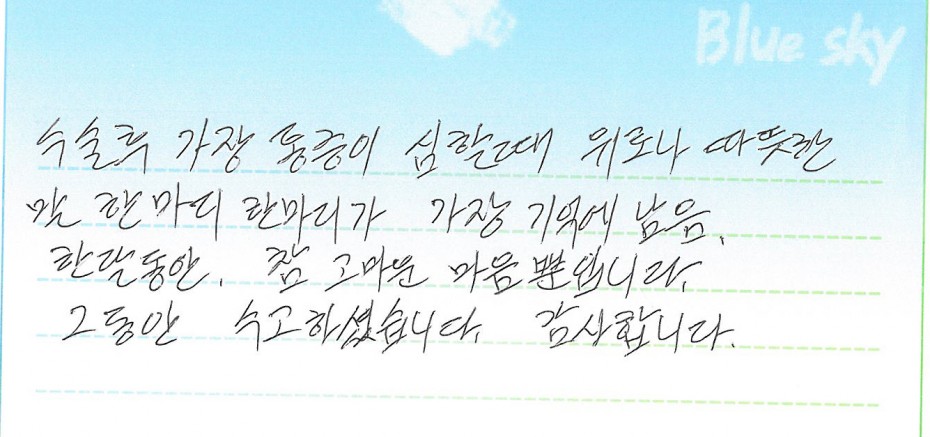 Blue sky
수술후 가장 통증이 심할때 위로나 따뜻한
말 한마디 한마디가 가장 기억에 남음.
한달동안. 참 고마운 마음뿐입니다.
그동안 수고하셨습니다. 감사합니다.